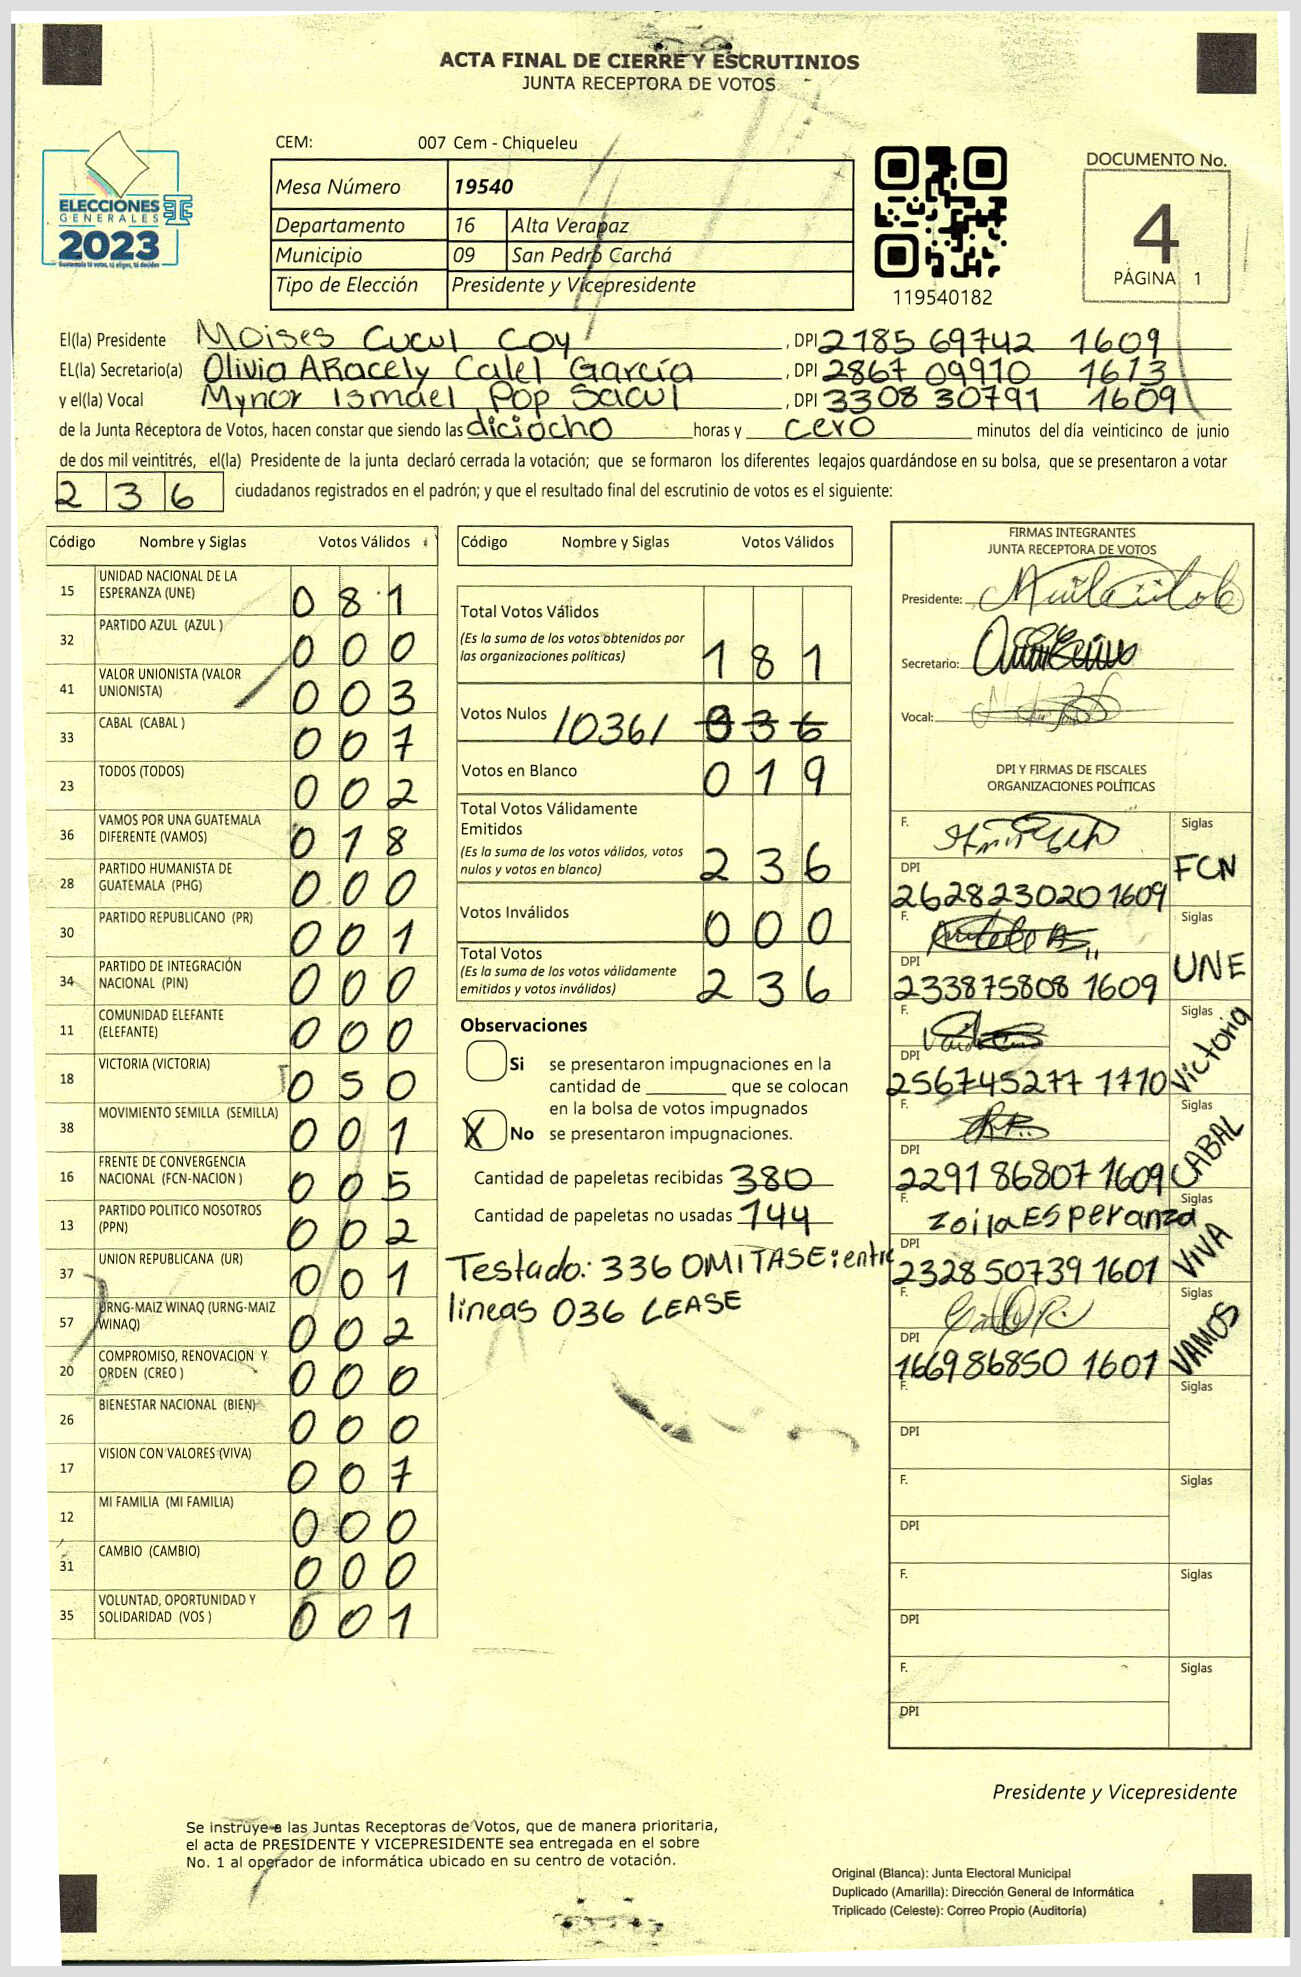 ACTA FINAL DE CIERRE Y ESCRUTINIOS
JUNTA RECEPTORA DE VOTOS
CEM: 007 Cem - Chiqueleu
ELECCIONES
GENERALES
2023
Mesa Número 19540
Departamento 16 Alta Verapaz
Municipio 09 San Pedro Carchá
Tipo de Elección Presidente y Vicepresidente
119540182
DOCUMENTO No.
4
PÁGINA 1
El(la) Presidente Moises Cucul Coy, DPI 2185 69742 1609
EL(la) Secretario(a) Olivia ARacely Calel García, DPI 2867 09910 1613
y el(la) Vocal Mynor Ismael Pop Sacul, DPI 3308 30791 1609
de la Junta Receptora de Votos, hacen constar que siendo las diciocho horas y cero minutos del día veinticinco de junio
de dos mil veintitrés, el(la) Presidente de la junta declaró cerrada la votación; que se formaron los diferentes legajos guardándose en su bolsa, que se presentaron a votar
236 ciudadanos registrados en el padrón; y que el resultado final del escrutinio de votos es el siguiente:
Código Nombre y Siglas Votos Válidos
15 UNIDAD NACIONAL DE LA
ESPERANZA (UNE) 081
32 PARTIDO AZUL (AZUL ) 000
41 VALOR UNIONISTA (VALOR
UNIONISTA) 003
33 CABAL (CABAL ) 007
23 TODOS (TODOS) 002
36 VAMOS POR UNA GUATEMALA
DIFERENTE (VAMOS) 018
28 PARTIDO HUMANISTA DE
GUATEMALA (PHG) 000
30 PARTIDO REPUBLICANO (PR) 001
34 PARTIDO DE INTEGRACIÓN
NACIONAL (PIN) 000
11 COMUNIDAD ELEFANTE
(ELEFANTE) 000
18 VICTORIA (VICTORIA) 050
38 MOVIMIENTO SEMILLA (SEMILLA) 001
16 FRENTE DE CONVERGENCIA
NACIONAL (FCN-NACION ) 005
13 PARTIDO POLITICO NOSOTROS
(PPN) 002
37 UNION REPUBLICANA (UR) 001
57 URNG-MAIZ WINAQ (URNG-MAIZ
WINAQ) 002
20 COMPROMISO, RENOVACION Y
ORDEN (CREO ) 000
26 BIENESTAR NACIONAL (BIEN) 000
17 VISION CON VALORES (VIVA) 007
12 MI FAMILIA (MI FAMILIA) 000
31 CAMBIO (CAMBIO) 000
35 VOLUNTAD, OPORTUNIDAD Y
SOLIDARIDAD (VOS ) 001
Código Nombre y Siglas Votos Válidos
Total Votos Válidos
(Es la suma de los votos obtenidos por
las organizaciones políticas) 181
Votos Nulos /036/ 336
Votos en Blanco 019
Total Votos Válidamente
Emitidos
(Es la suma de los votos válidos, votos
nulos y votos en blanco) 236
Votos Inválidos 000
Total Votos
(Es la suma de los votos válidamente
emitidos y votos inválidos) 236
Observaciones
Si se presentaron impugnaciones en la
cantidad de ________ que se colocan
en la bolsa de votos impugnados
X No se presentaron impugnaciones.
Cantidad de papeletas recibidas 380
Cantidad de papeletas no usadas 144
Testado: 336 OMITASE: entre
lineas 036 LEASE
FIRMAS INTEGRANTES
JUNTA RECEPTORA DE VOTOS
Presidente:
Secretario:
Vocal:
DPI Y FIRMAS DE FISCALES
ORGANIZACIONES POLÍTICAS
F. Siglas
DPI FCN
262823020 1609
F. Siglas
DPI UNE
233875808 1609
F. Siglas
DPI Victoria
256745277 1710
F. Siglas
DPI CABAL
2291 86807 1609
F. Zoila ESperanza Siglas
DPI VIVA
232850739 1601
F. Siglas
DPI VAMOS
166986850 1601
F. Siglas
DPI
F. Siglas
DPI
F. Siglas
DPI
F. Siglas
DPI
Presidente y Vicepresidente
Se instruye a las Juntas Receptoras de Votos, que de manera prioritaria,
el acta de PRESIDENTE Y VICEPRESIDENTE sea entregada en el sobre
No. 1 al operador de informática ubicado en su centro de votación.
Original (Blanca): Junta Electoral Municipal
Duplicado (Amarilla): Dirección General de Informática
Triplicado (Celeste): Correo Propio (Auditoría)